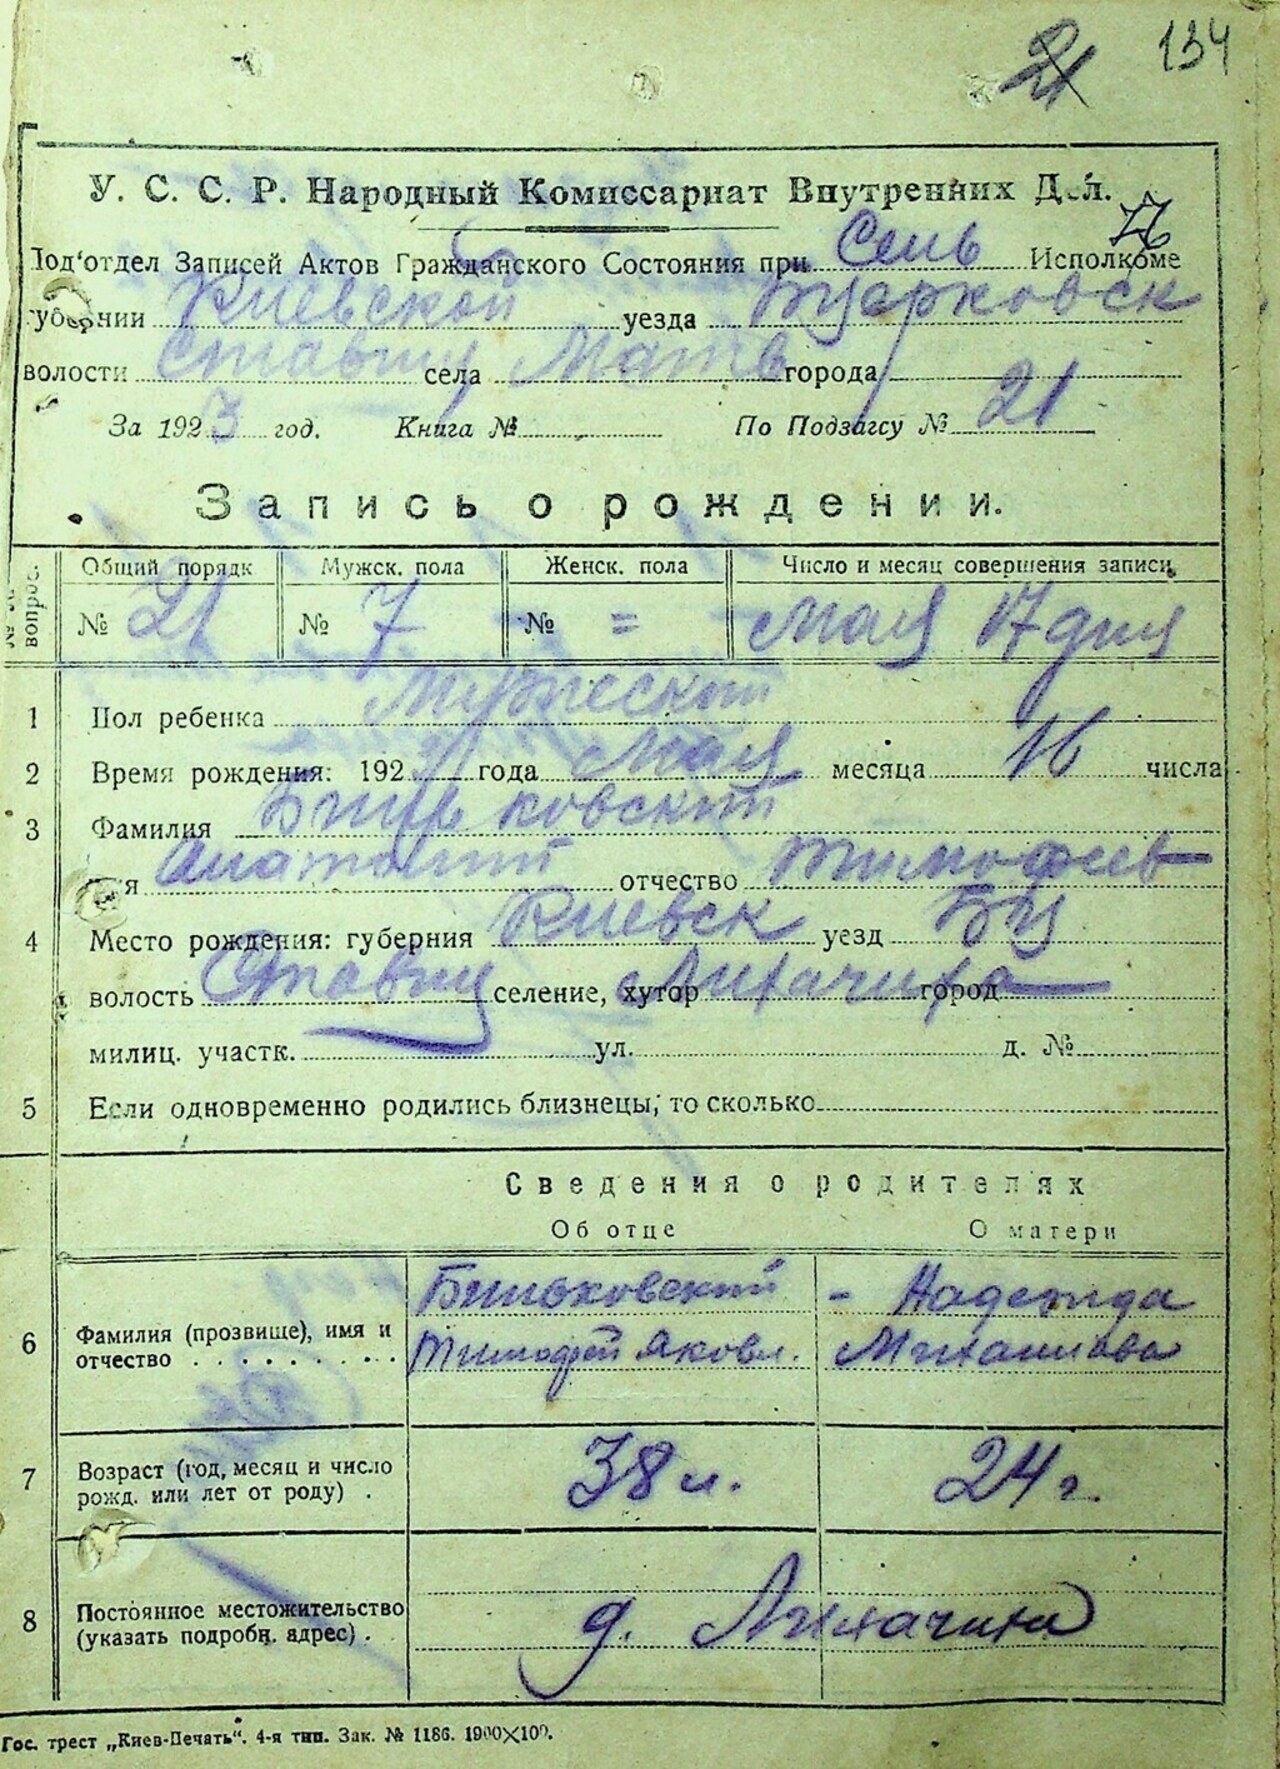 21 134
У. С. С. Р. Народный Комиссариат Внутренних Дел.
Под'отдел Записей Актов Гражданского Состояния при Сель Исполкоме
губернии Киевской уезда Бцерковск
волости Ставищ села Матв города
За 1923 год. Книга № По Подзагсу № 21
Запись о рождении.
№ № вопрос. Общий порядк Мужск. пола Женск. пола Число и месяц совершения записи
№ 21 № 7 № = Мая 17 дня
1 Пол ребенка Мужеской
2 Время рождения: 192 года Мая месяца 16 числа
3 Фамилия Биньковский
Имя Анатолий отчество Тимофеев
4 Место рождения: губерния Киевск уезд БЦ
волость Ставищ селение, хутор Лихачиха город
милиц. участк. ул. д. №
5 Если одновременно родились близнецы, то сколько
Сведения о родителях
Об отце О матери
Биньковский - Надежда
6 Фамилия (прозвище), имя и
отчество Тимофей Яковл. Михайлова
7 Возраст (год, месяц и число
рожд. или лет от роду). 38 л. 24 г.
8 Постоянное местожительство
(указать подробн. адрес). д. Лихачиха
Гос. трест „Киев-Печать“. 4-я тип. Зак. № 1186. 1900×100.